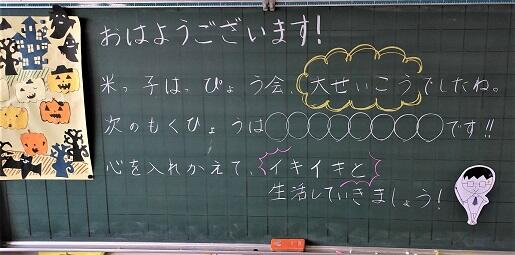 おはようございます!
米っ子はっぴょう会、大せいこうでしたね。
次のもくひょうは○○○○○○○○です!!
心を入れかえて、イキイキと
生活していきましょう!